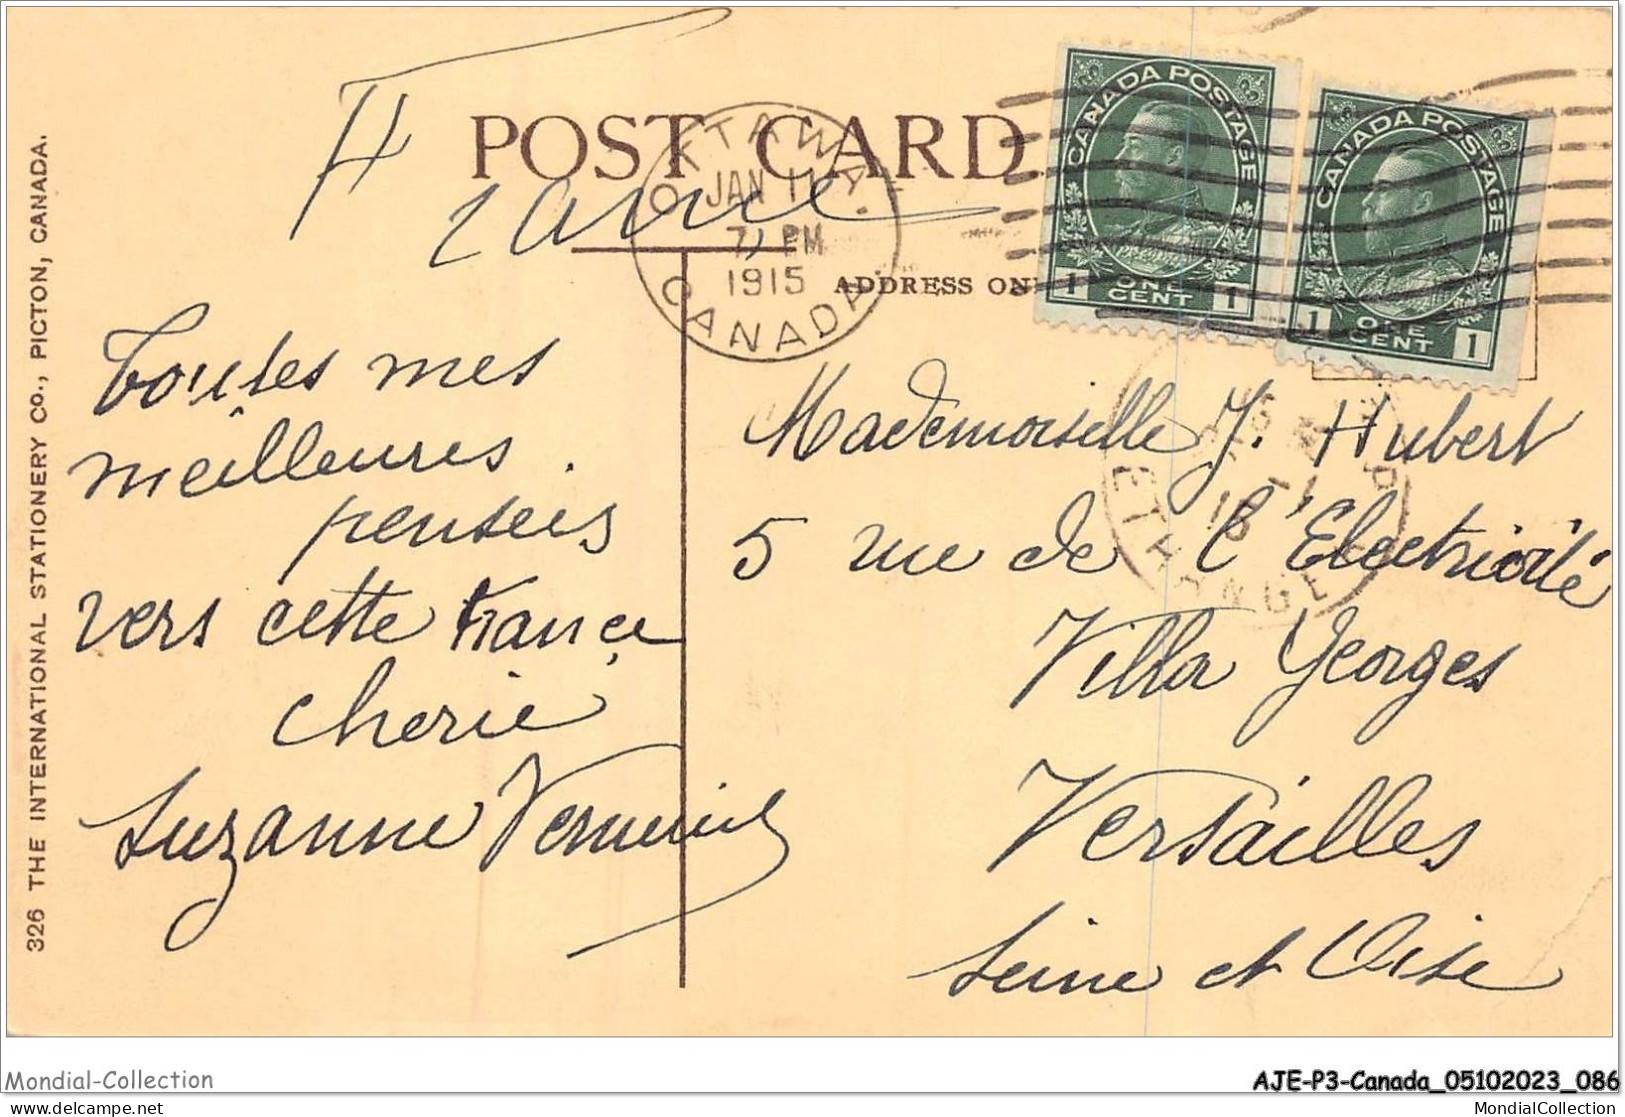 POST CARD
France
OTTAWA.
JAN 11
7 PM
1915
CANADA
CANADA POSTAGE
1 ONE CENT 1
CANADA POSTAGE
1 ONE CENT 1
ADDRESS ON
326 THE INTERNATIONAL STATIONERY CO., PICTON, CANADA.
Toutes mes
meilleures
pensées
vers cette France
cherie
Suzanne
Mademoiselle J. Hubert
5 rue de l'Electricité
Villa Georges
Versailles
Seine et Oise
ETRANGER
Mondial-Collection
AJE-P3-Canada_05102023_086
mondial-collection.delcampe.net
MondialCollection